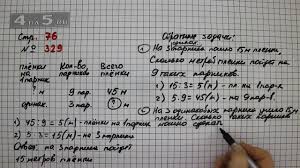 4 fun 5
Стр. 76
№ 329
плёнки на 1 парник
Кол-во парников
Всего плёнки
? м
9 пар.
45 м
однак.
3 пар.
? м
1) 45 : 9 = 5 (м) - плёнки на 1 парник
2) 5 · 3 = 15 (м) - на 3 парника
Ответ: на 3 парника пойдёт
15 метров плёнки
Обратные задачи:
① На 3 парника пошло 15 м плёнки,
Сколько метров плёнки пойдёт на
9 таких парников.
1) 15 : 3 = 5 (м) - пл. на 1 парн.
2) 5 · 9 = 45 (м) - на 9 пар-в.
② На 3 одинаковых парника ушло 15 м
плёнки. Сколько таких парников
можно